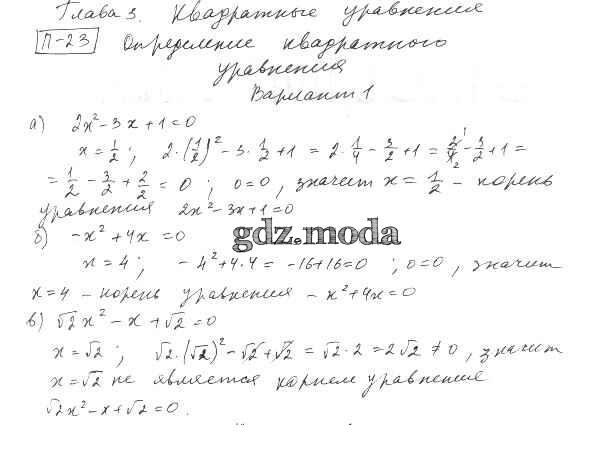 Глава 3. Квадратные уравнения
П-23 Определение квадратного
уравнения
Вариант 1
а) 2x² - 3x + 1 = 0
x = 1/2; 2·(1/2)² - 3·1/2 + 1 = 2·1/4 - 3/2 + 1 = 2/4 - 3/2 + 1 =
= 1/2 - 3/2 + 2/2 = 0; 0=0, значит x = 1/2 - корень
уравнения 2x² - 3x + 1 = 0
б) -x² + 4x = 0
gdz.moda
x = 4; -4² + 4·4 = -16+16=0; 0=0, значит
x=4 - корень уравнения -x² + 4x = 0
в) √2x² - x + √2 = 0
x = √2; √2·(√2)² - √2 + √2 = √2·2 = 2√2 ≠ 0, значит
x = √2 не является корнем уравнения
√2x² - x + √2 = 0.